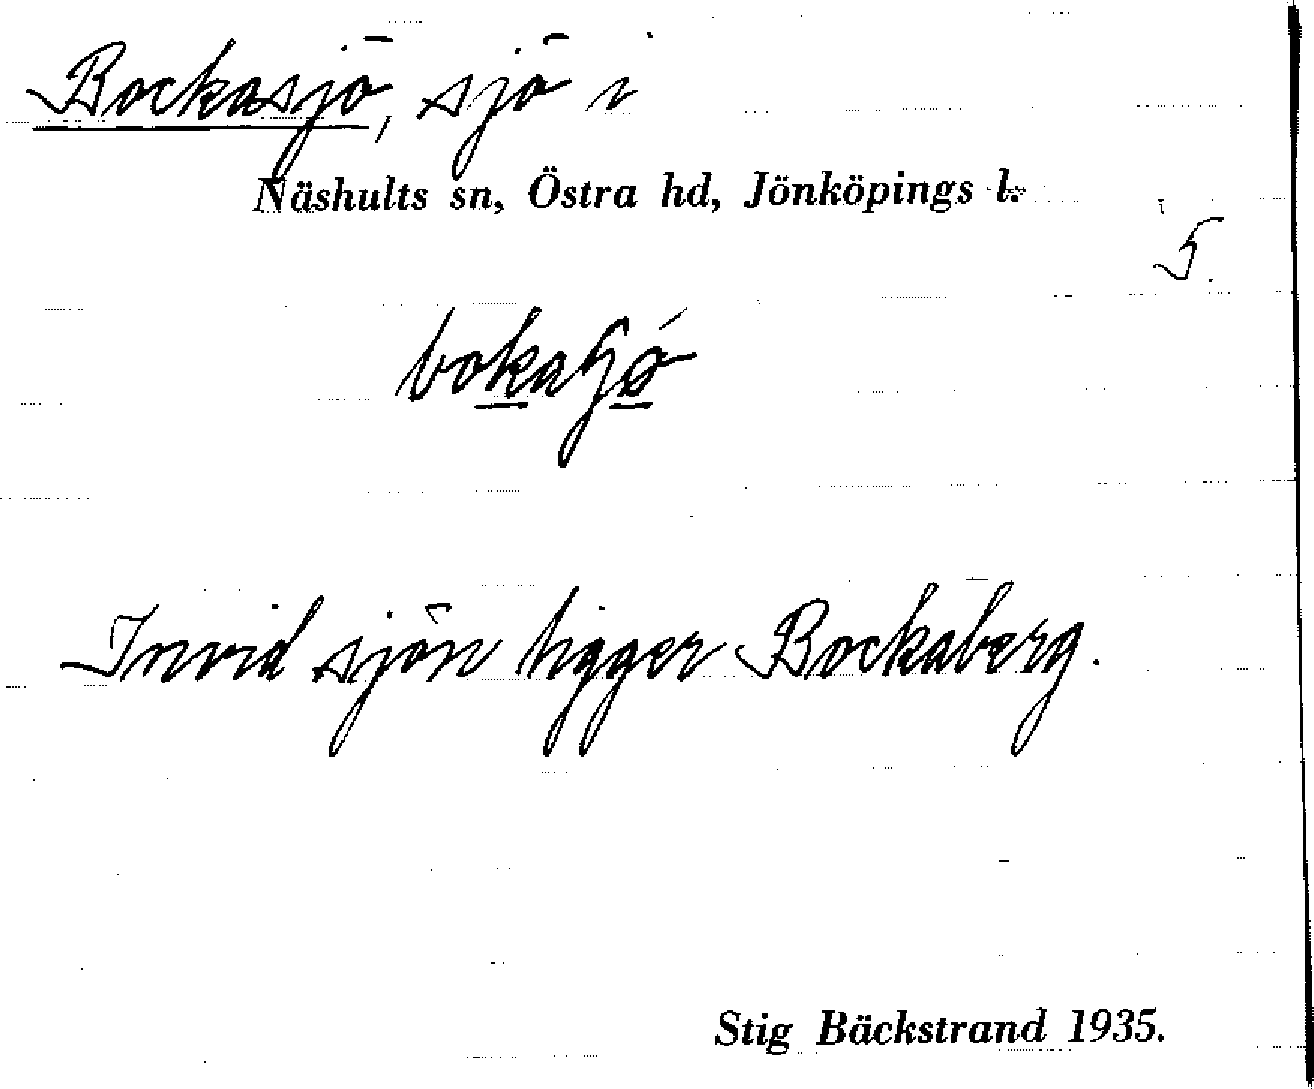 Bockasjö, sjö i
Näshults sn, Östra hd, Jönköpings l.
5.
Invid sjön ligger Bockaberg.
Stig Bäckstrand 1935.